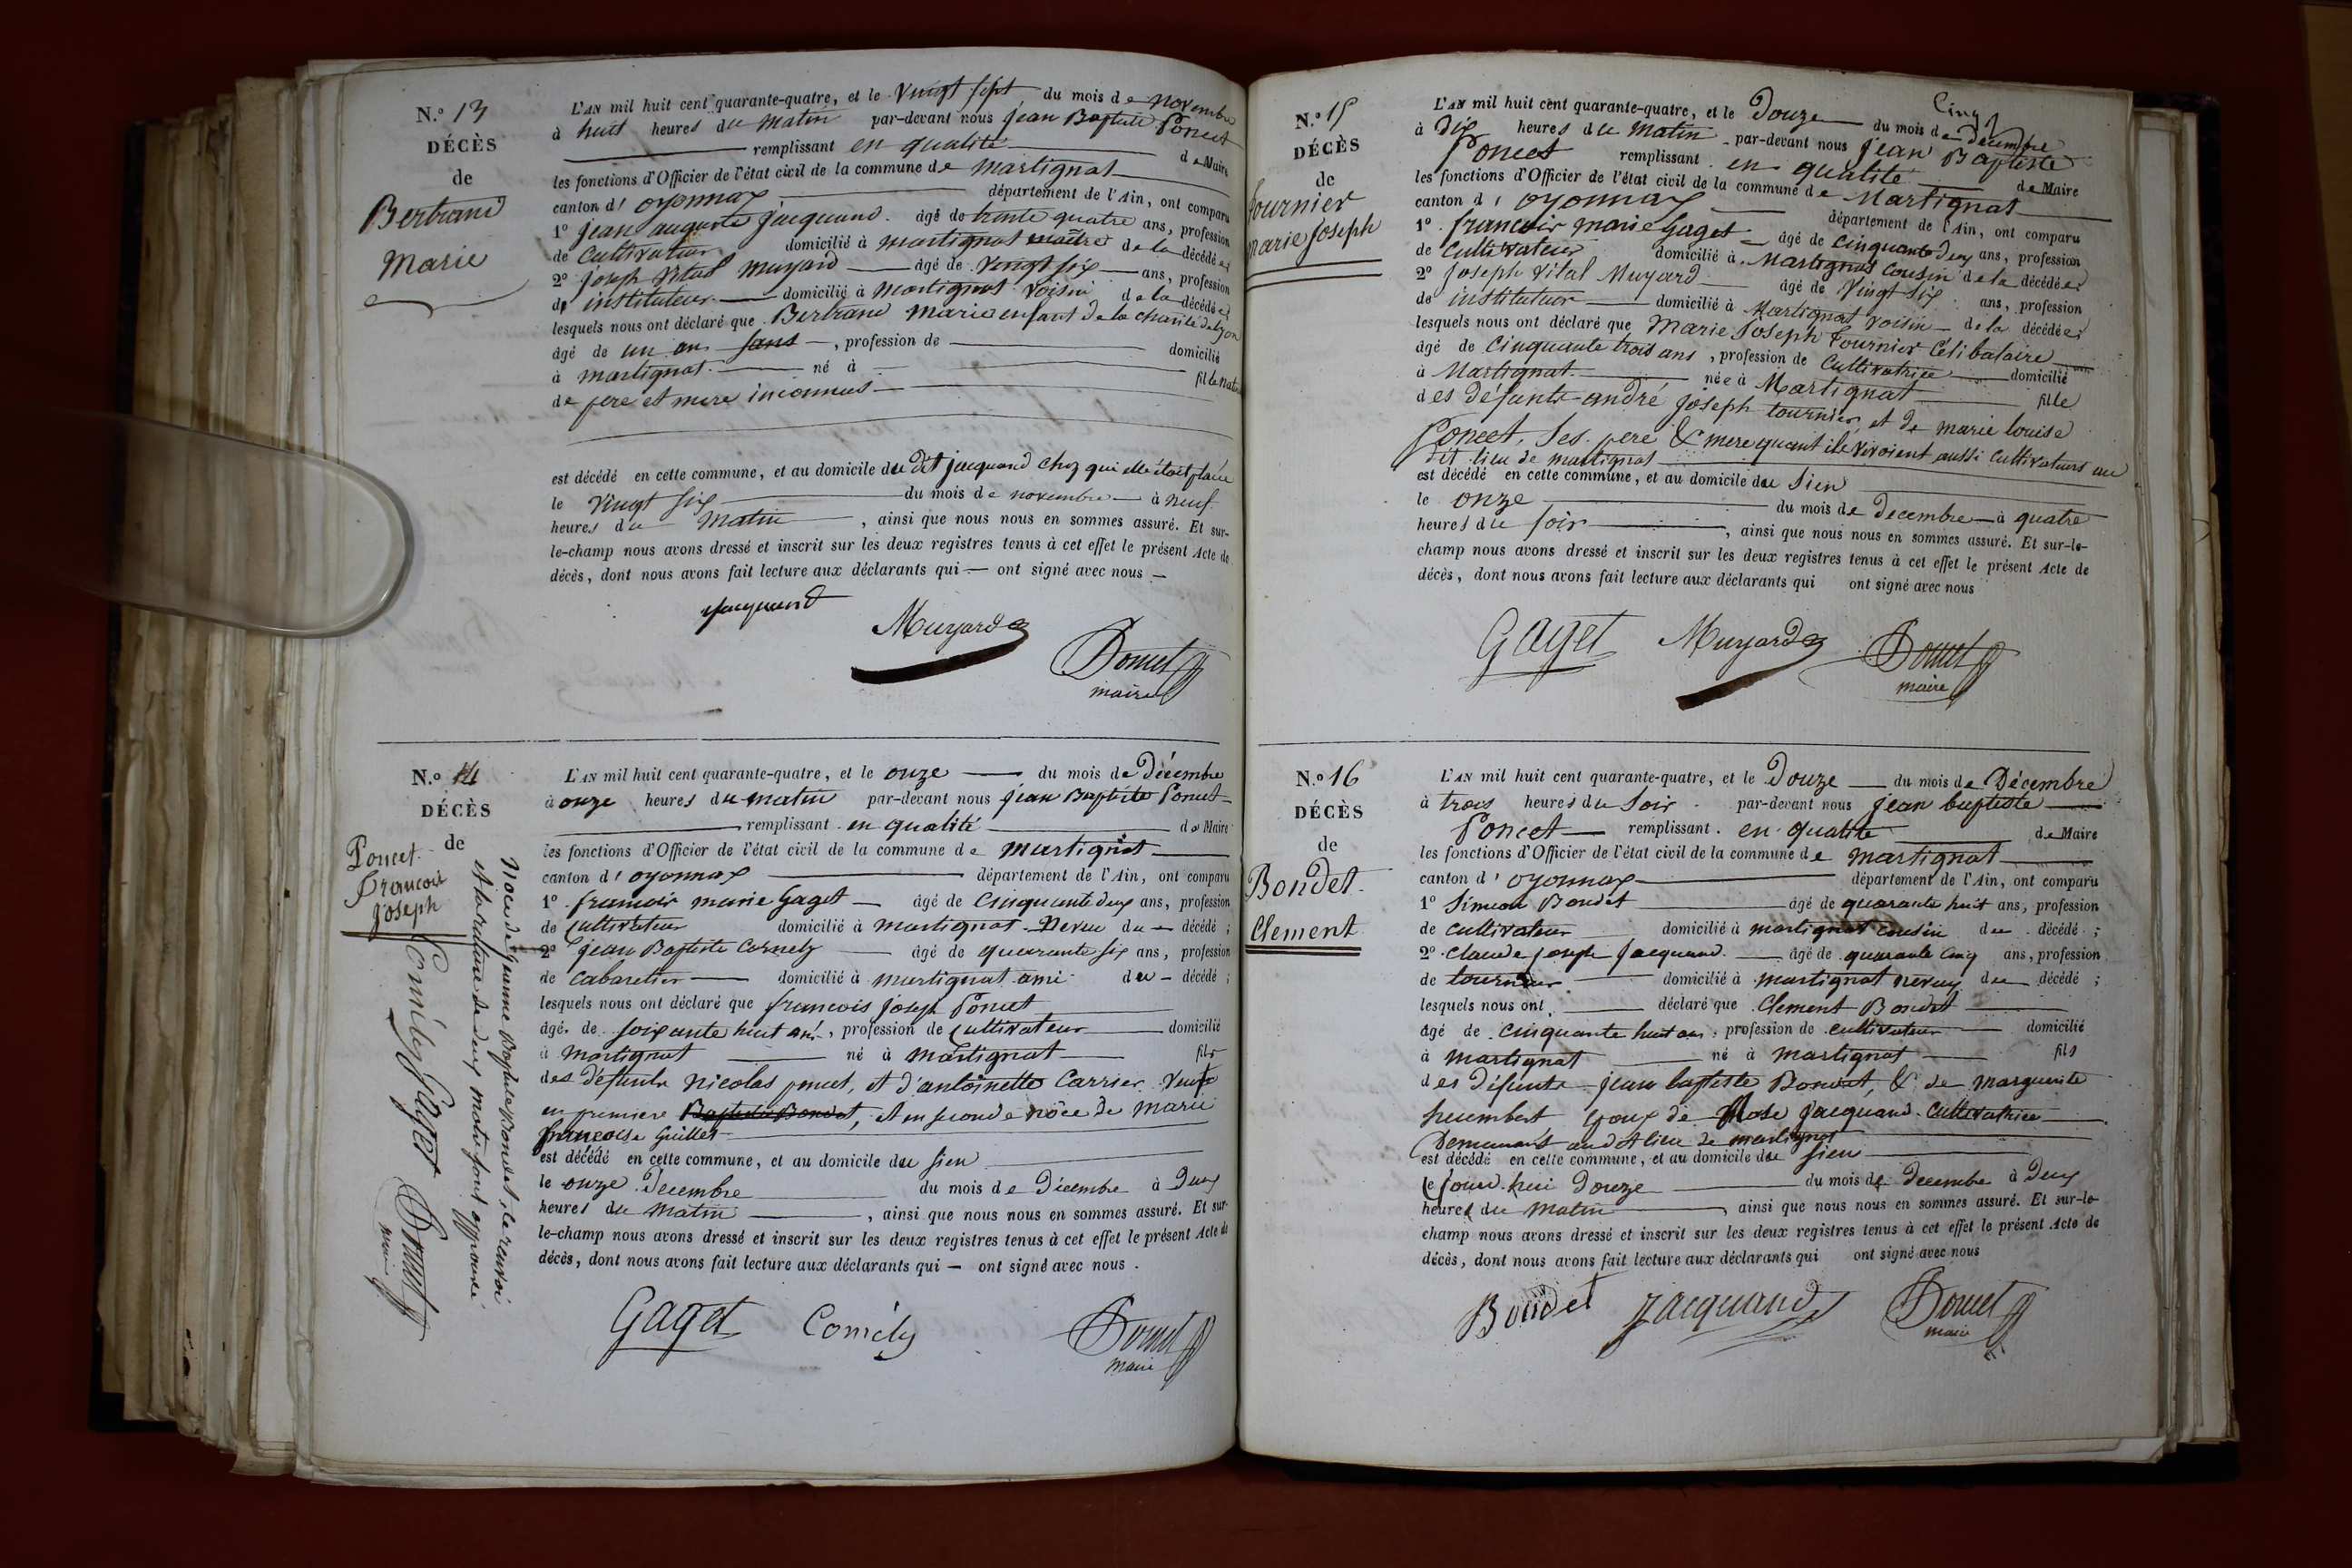 N.° 13
DÉCÈS
de
Bertrand
Marie
L'AN mil huit cent quarante-quatre, et le vingt sept du mois de novembre
à huit heures du matin par-devant nous jean Baptiste Poncet
remplissant en qualité de Maire
les fonctions d'Officier de l'état civil de la commune de martignat
canton d'oyonnax département de l'Ain, ont comparu
1° jean auguste jacquand. âgé de trente quatre ans, profession
de cultivateur domicilié à martignat maître de la décédée;
2° joseph vital muyard âgé de vingt six ans, profession
de instituteur domicilié à martignat voisin de la décédée;
lesquels nous ont déclaré que Bertrand Marie enfant de la charité de lyon
âgé de un an sans, profession de domicilié
à martignat né à fille
de pere et mere inconnus
est décédé en cette commune, et au domicile du dit jacquand chez qui elle étoit placée
le vingt six du mois de novembre à neuf
heures du matin, ainsi que nous nous en sommes assuré. Et sur-
le-champ nous avons dressé et inscrit sur les deux registres tenus à cet effet le présent Acte de
décès, dont nous avons fait lecture aux déclarants qui ont signé avec nous
Jacquand
Muyard
Poncet
maire
N.° 14
DÉCÈS
de
Poncet
François
joseph
Noce de jeanne Baptiste Bondet, le renvoi
et la rature de deux mots sont approuvé
Cornély Gaget Poncet
maire
L'AN mil huit cent quarante-quatre, et le onze du mois de Décembre
à onze heures du matin par-devant nous jean Baptiste Poncet
remplissant en qualité de Maire
les fonctions d'Officier de l'état civil de la commune de martignat
canton d'oyonnax département de l'Ain, ont comparu
1° francois marie Gaget âgé de cinquante deux ans, profession
de cultivateur domicilié à martignat Neveu du décédé;
2° jean Baptiste Cornely âgé de quarante six ans, profession
de cabaretier domicilié à martignat ami du décédé;
lesquels nous ont déclaré que francois joseph Poncet
âgé de soixante huit ans, profession de cultivateur domicilié
à martignat né à martignat fils
des défunts Nicolas poncet, et d'antoinette Carrier veuf
en premiere Baptiste Bondet, et en seconde nôce de marie
françoise Guillet
est décédé en cette commune, et au domicile du sien
le onze Decembre du mois de Décembre à Deux
heures du matin, ainsi que nous nous en sommes assuré. Et sur-
le-champ nous avons dressé et inscrit sur les deux registres tenus à cet effet le présent Acte de
décès, dont nous avons fait lecture aux déclarants qui ont signé avec nous.
Gaget
Cornély
Poncet
maire
N.° 15
DÉCÈS
de
Tournier
Marie Joseph
Cinq
L'AN mil huit cent quarante-quatre, et le Douze du mois de décembre
à Dix heures du matin par-devant nous jean Baptiste
Poncet remplissant en qualité de Maire
les fonctions d'Officier de l'état civil de la commune de Martignat
canton d'oyonnax département de l'Ain, ont comparu
1° francois marie Gaget âgé de cinquante deux ans, profession
de cultivateur domicilié à Martignat cousin de la décédée;
2° joseph vital Muyard âgé de vingt six ans, profession
de instituteur domicilié à Martignat voisin de la décédée;
lesquels nous ont déclaré que Marie Joseph Tournier célibataire
âgé de cinquante trois ans, profession de cultivatrice domicilié
à Martignat née à Martignat fille
des défunts andré joseph tournier, et de marie louise
Poncet, ses pere & mere quant ils vivoient aussi cultivateurs au
dit lieu de martignat
est décédé en cette commune, et au domicile du sien
le onze du mois de Decembre à quatre
heures du soir, ainsi que nous nous en sommes assuré. Et sur-le-
champ nous avons dressé et inscrit sur les deux registres tenus à cet effet le présent Acte de
décès, dont nous avons fait lecture aux déclarants qui ont signé avec nous
Gaget
Muyard
Poncet
maire
N.° 16
DÉCÈS
de
Bondet
Clement
L'AN mil huit cent quarante-quatre, et le Douze du mois de Décembre
à trois heures du soir par-devant nous jean baptiste
Poncet remplissant en qualité de Maire
les fonctions d'Officier de l'état civil de la commune de martignat
canton d'oyonnax département de l'Ain, ont comparu
1° Simeon Bondet âgé de quarante huit ans, profession
de cultivateur domicilié à martignat cousin du décédé;
2° Claude joseph jacquand âgé de quarante cinq ans, profession
de tourneur domicilié à martignat neveu du décédé;
lesquels nous ont déclaré que Clement Bondet
âgé de cinquante huit ans, profession de cultivateur domicilié
à martignat né à martignat fils
des défunts jean baptiste Bondet, & de marguerite
humbert époux de Rose jacquand cultivatrice
Demeurant audit lieu de martignat
est décédé en cette commune, et au domicile du sien
le jourd'hui Douze du mois de Decembre à Deux
heures du matin ainsi que nous nous en sommes assuré. Et sur-le-
champ nous avons dressé et inscrit sur les deux registres tenus à cet effet le présent Acte de
décès, dont nous avons fait lecture aux déclarants qui ont signé avec nous
Bondet
Jacquand
Poncet
maire